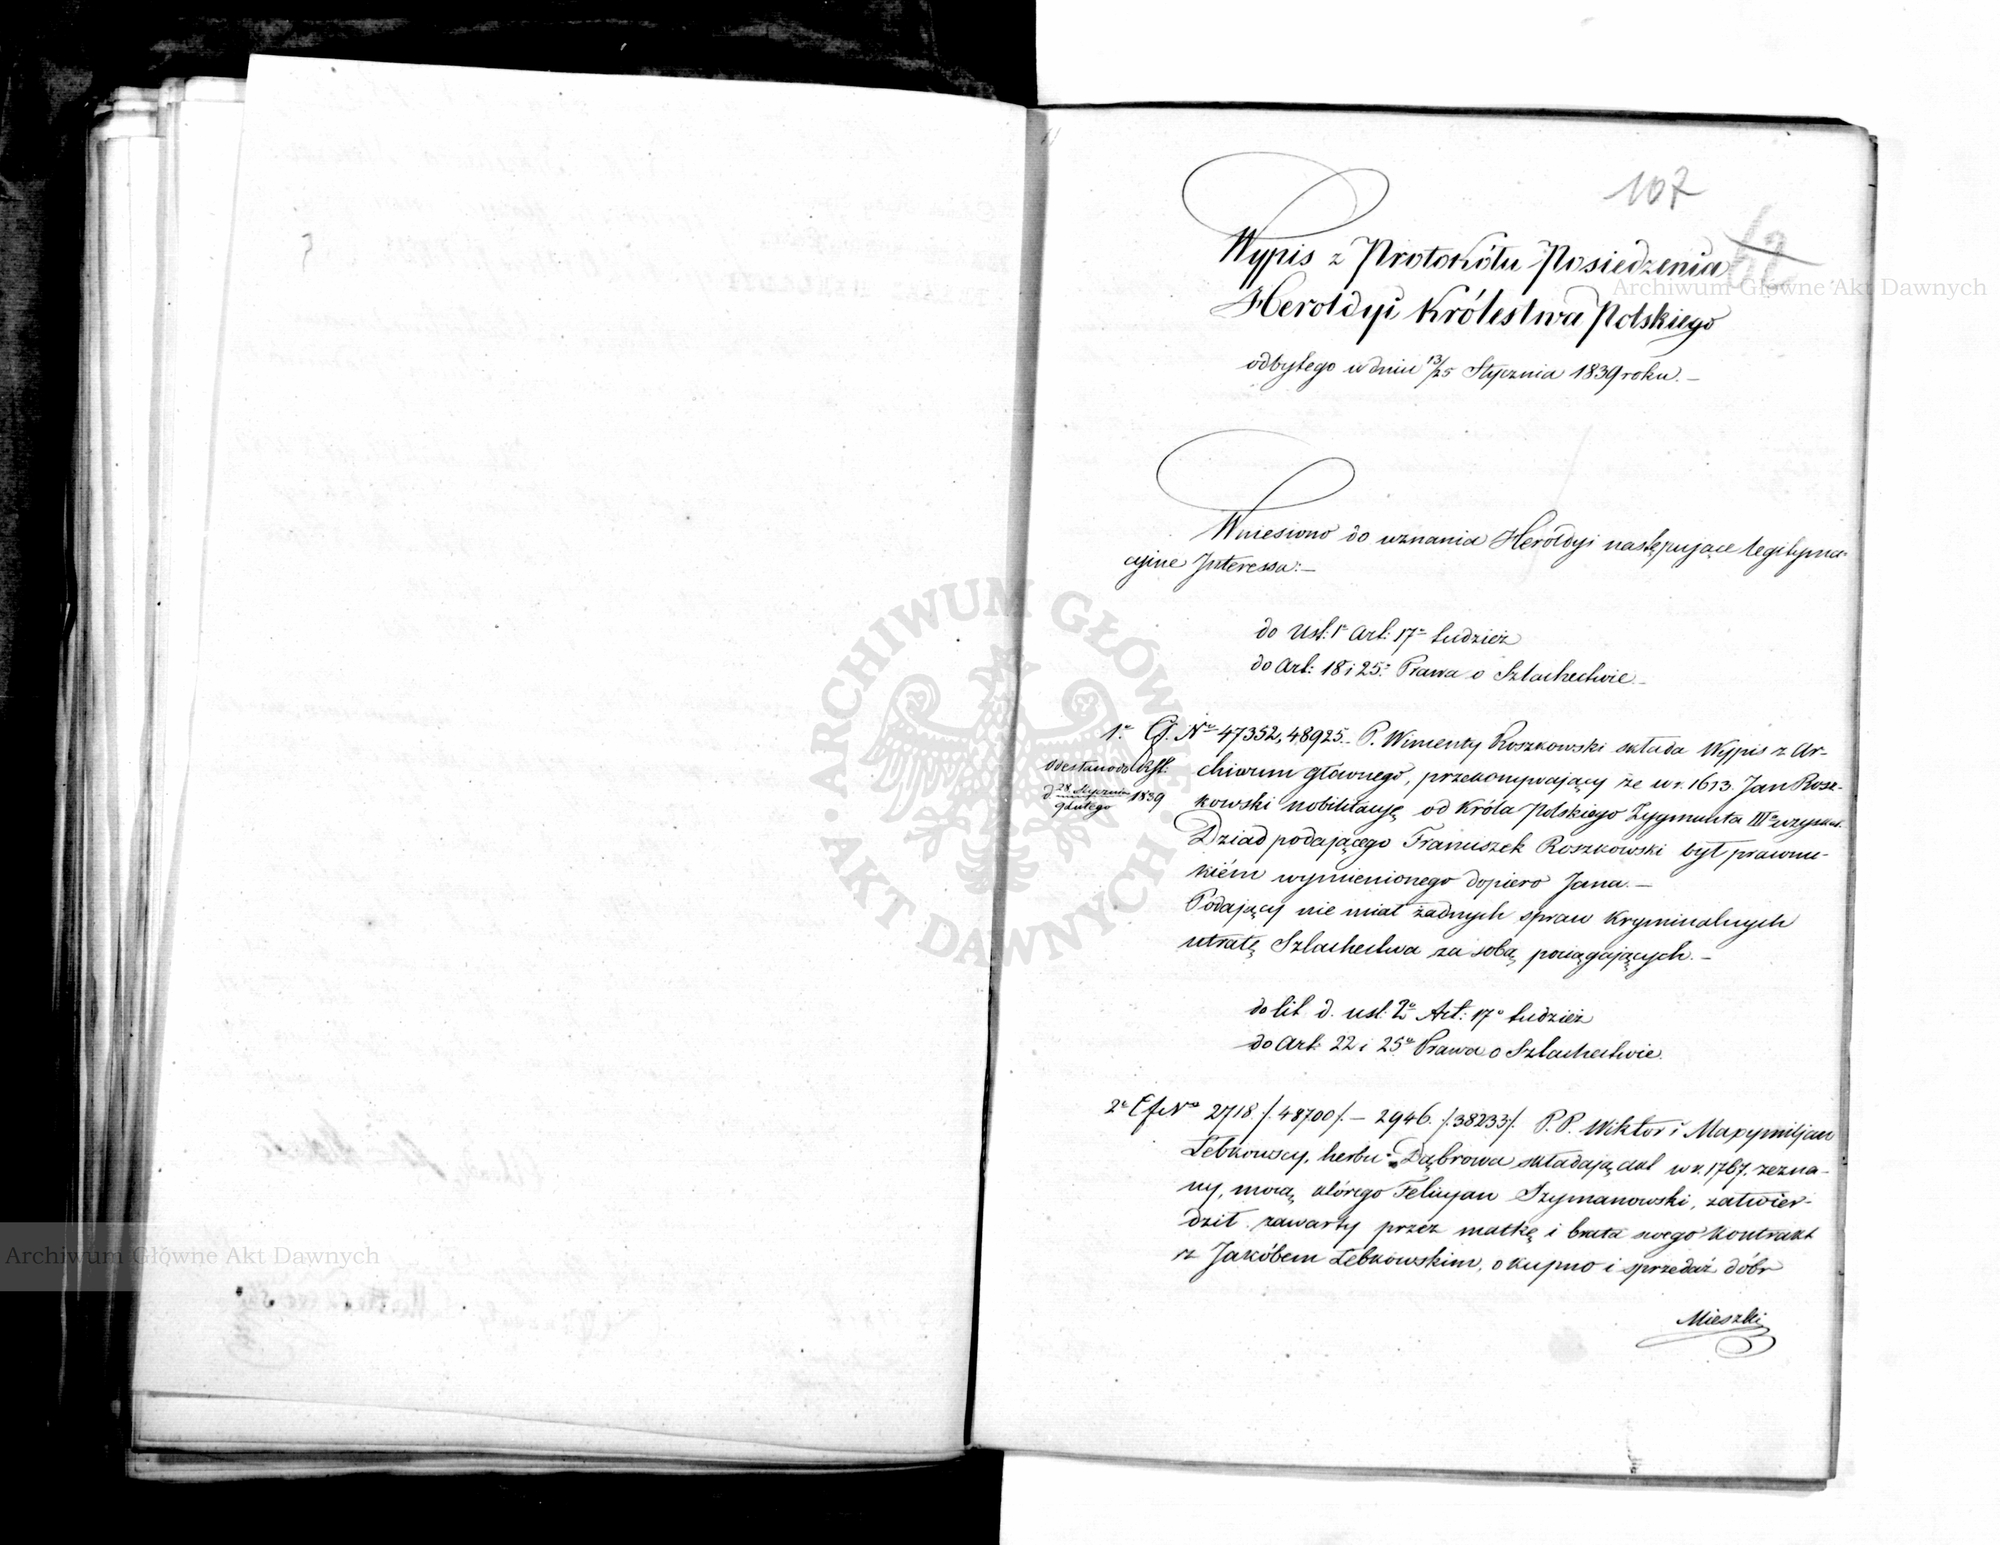 107
42
Wypis z Protokółu Posiedzenia
Heroldyi Królestwa Polskiego
odbytego w dniu 13/25 Stycznia 1839 roku. –
Wniesiono do uznania Heroldyi następujące legityma-
cyjne Interessa: –
do Ust: 1o Art: 17o tudzież
do Art: 18 i 25o Prawa o Szlachectwie. –
1o Cf. No 47352, 48925. P. Wincenty Roszkowski składa Wypis z Ar-
chiwum głównego, przekonywający że w r. 1613. Jan Rosz-
kowski nobilitacyę od Króla Polskiego Zygmunta IIIo uzyskał.
Dziad podającego Franciszek Roszkowski był prawnu-
kiém wymienionego dopiero Jana. –
Podający nie miał żadnych spraw kryminalnych
utratę Szlachectwa za sobą pociągających. –
d. 28 Stycznia / 9 Lutego 1839
do lit d. ust: 2o Art: 17o tudzież
do Art: 22 i 25o Prawa o Szlachectwie.
2o Cf No 2718 /:48700/: – 2946. /:38233/: P.P. Wiktor i Maxymiljan
Łebkowscy, herbu Dąbrowa składają akt w r. 1767. zezna-
ny, mocą którego Felicyan Szymanowski, zatwier-
dził zawarty przez matkę i brata swego kontrakt
z Jakóbem Łebkowskim, o kupno i sprzedaż dóbr
Mieszki
Archiwum Główne Akt Dawnych
Archiwum Główne Akt Dawnych
ARCHIWUM GŁÓWNE · AKT DAWNYCH ·